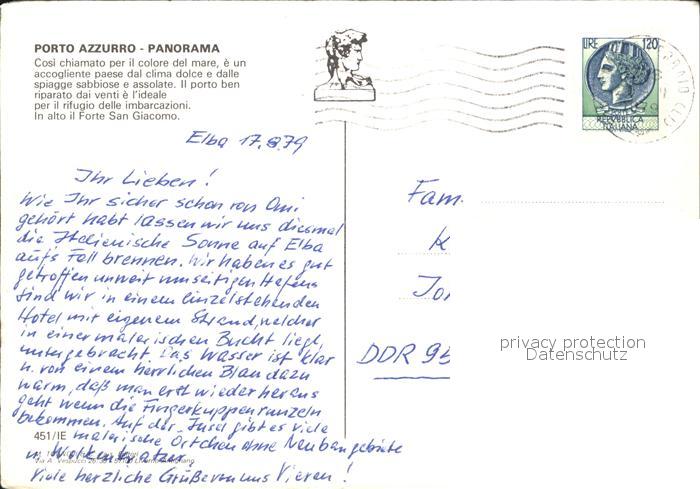 PORTO AZZURRO - PANORAMA
Così chiamato per il colore del mare, è un
accogliente paese dal clima dolce e dalle
spiagge sabbiose e assolate. Il porto ben
riparato dai venti è l'ideale
per il rifugio delle imbarcazioni.
In alto il Forte San Giacomo.
LIRE 120
REPUBBLICA
ITALIANA
Elba 17.8.79
Ihr Lieben!
Wie Ihr sicher schon von Omi
gehört habt lassen wir uns diesmal
die Italienische Sonne auf Elba
aufs Fell brennen. Wir haben es gut
getroffen unweit umseitigen Hafens
sind wir in einem einzelstehenden
Hotel mit eigenem Strand, welcher
in einer malerischen Bucht liegt,
untergebracht. Das Wasser ist klar
u. von einem herrlichen Blau dazu
warm, daß man erst wieder heraus
geht wenn die Fingerkuppen runzeln
bekommen. Auf der Insel gibt es viele
malerische Örtchen ohne Neubaugebiete
u. Wolkenkratzer.
Viele herzliche Grüße von uns Vieren!
451/IE
Fam.
K
DDR 95
privacy protection
Datenschutz